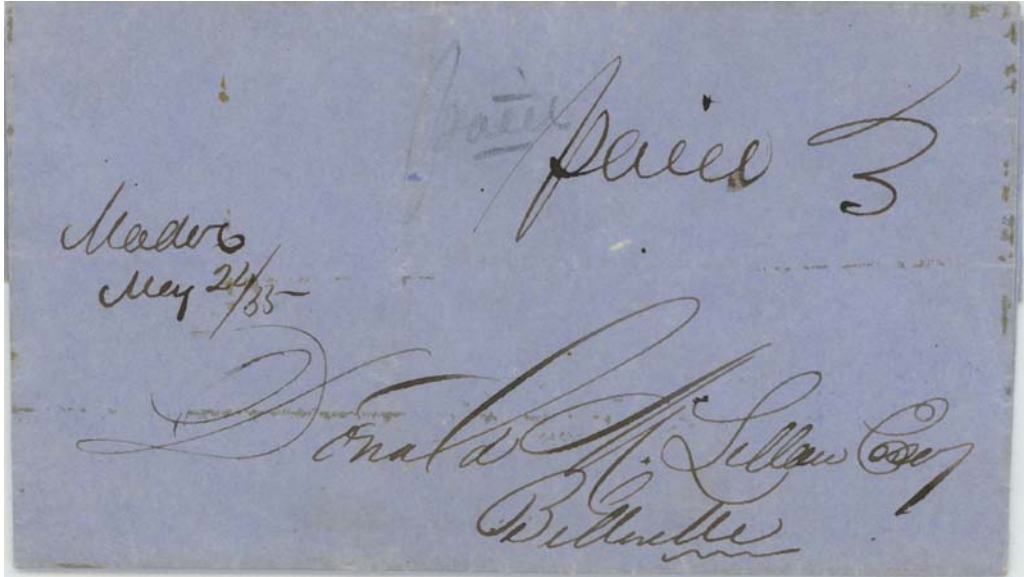 paid
paid 3
Madoc
May 24/55
Donald McLellan Esq
Belleville